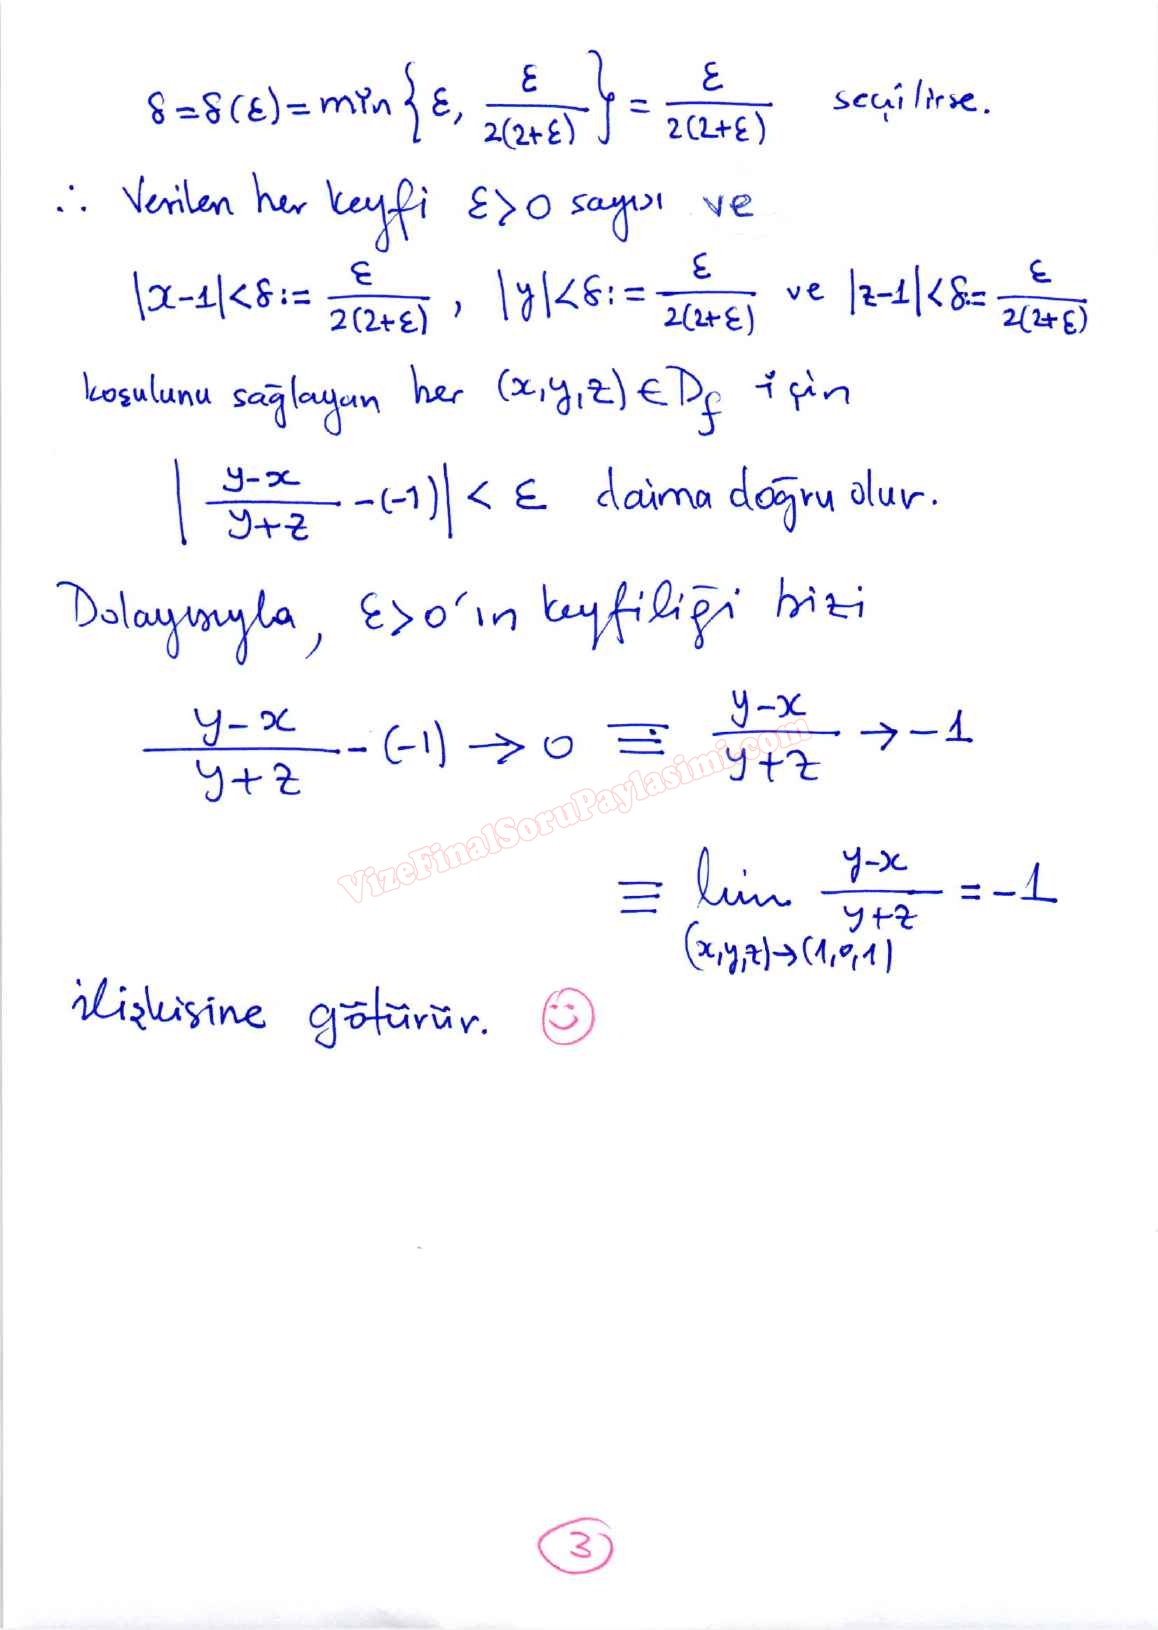 δ=δ(ε)=min{ε, ε/2(2+ε)} = ε/2(2+ε) seçilirse.
∴ Verilen her keyfi ε>0 sayısı ve
|x-1|<δ:= ε/2(2+ε), |y|<δ:= ε/2(2+ε) ve |z-1|<δ:= ε/2(2+ε)
koşulunu sağlayan her (x,y,z)∈D_f için
|(y-x)/(y+z) -(-1)| < ε daima doğru olur.
Dolayısıyla, ε>0'ın keyfiliği bizi
(y-x)/(y+z) -(-1) → 0 ≡ (y-x)/(y+z) → -1
≡ lim (x,y,z)→(1,0,1) (y-x)/(y+z) = -1
ilişkisine götürür. ☺
VizeFinalSoruPaylasimi.com
3